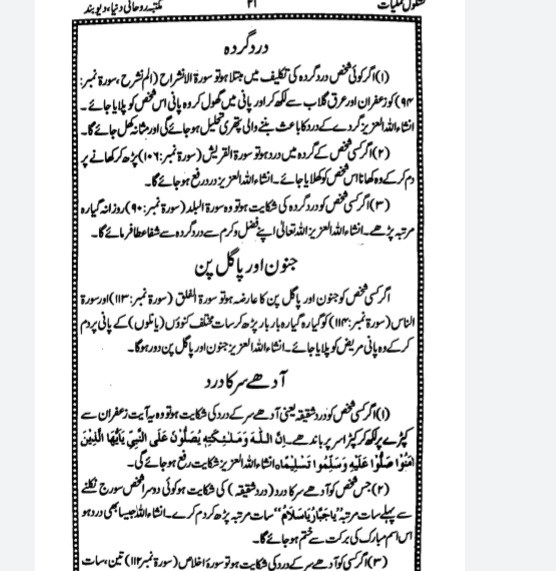 کشکول عملیات ۲۱ مکتبہ روحانی دنیا، دیوبند
درد گردہ
(۱) اگر کوئی شخص درد گردہ کی تکلیف میں مبتلا ہو تو سورۃ الانشراح (الم نشرح، سورۃ نمبر:
۹۴) کو زعفران اور عرق گلاب سے لکھ کر اور پانی میں گھول کر وہ پانی اس شخص کو پلایا جائے۔
انشاءاللہ العزیز گردے کے درد کا باعث بننے والی پتھری تحلیل ہو جائے گی اور مثانہ کھل جائے گا۔
(۲) اگر کسی شخص کے گردہ میں درد ہو تو سورۃ القریش (سورۃ نمبر: ۱۰۶) پڑھ کر کھانے پر
دم کر کے وہ کھانا اس شخص کو کھلایا جائے۔ انشاءاللہ العزیز درد رفع ہو جائے گا۔
(۳) اگر کسی شخص کو درد گردہ کی شکایت ہو تو وہ سورۃ البلد (سورۃ نمبر: ۹۰) روزانہ گیارہ
مرتبہ پڑھے۔ انشاءاللہ العزیز اللہ تعالیٰ اپنے فضل و کرم سے درد گردہ سے شفا عطا فرمائے گا۔
جنون اور پاگل پن
اگر کسی شخص کو جنون اور پاگل پن کا عارضہ ہو تو سورۃ الفلق (سورۃ نمبر: ۱۱۳) اور سورۃ
الناس (سورۃ نمبر: ۱۱۴) کو گیارہ گیارہ بار پڑھ کر سات مختلف کنوؤں (یا نلوں) کے پانی پر دم
کر کے وہ پانی مریض کو پلایا جائے۔ انشاءاللہ العزیز جنون اور پاگل پن دور ہوگا۔
آدھے سر کا درد
(۱) اگر کسی شخص کو درد شقیقہ یعنی آدھے سر کے درد کی شکایت ہو تو وہ یہ آیت زعفران سے
کپڑے پر لکھ کر کپڑا سر پر باندھے۔ اِنَّ اللّٰهَ وَمَلٰٓئِكَتَهٗ يُصَلُّوْنَ عَلَى النَّبِيِّ يٰٓاَيُّهَا الَّذِيْنَ
اٰمَنُوْا صَلُّوْا عَلَيْهِ وَسَلِّمُوْا تَسْلِيْمًا۝ انشاءاللہ العزیز شکایت رفع ہو جائے گی۔
(۲) جس شخص کو آدھے سر کا درد (درد شقیقہ) کی شکایت ہو کوئی دوسرا شخص سورج نکلنے
سے پہلے سات مرتبہ "یَا جَبَّارُ یَا سَلَامُ" سات مرتبہ پڑھ کر دم کرے۔ انشاءاللہ جیسا بھی درد ہو
اس اسم مبارک کی برکت سے ختم ہو جائے گا۔
(۳) اگر کسی کو آدھے سر کے درد کی شکایت ہو تو سورۃ اخلاص (سورۃ نمبر ۱۱۲) تین، سات